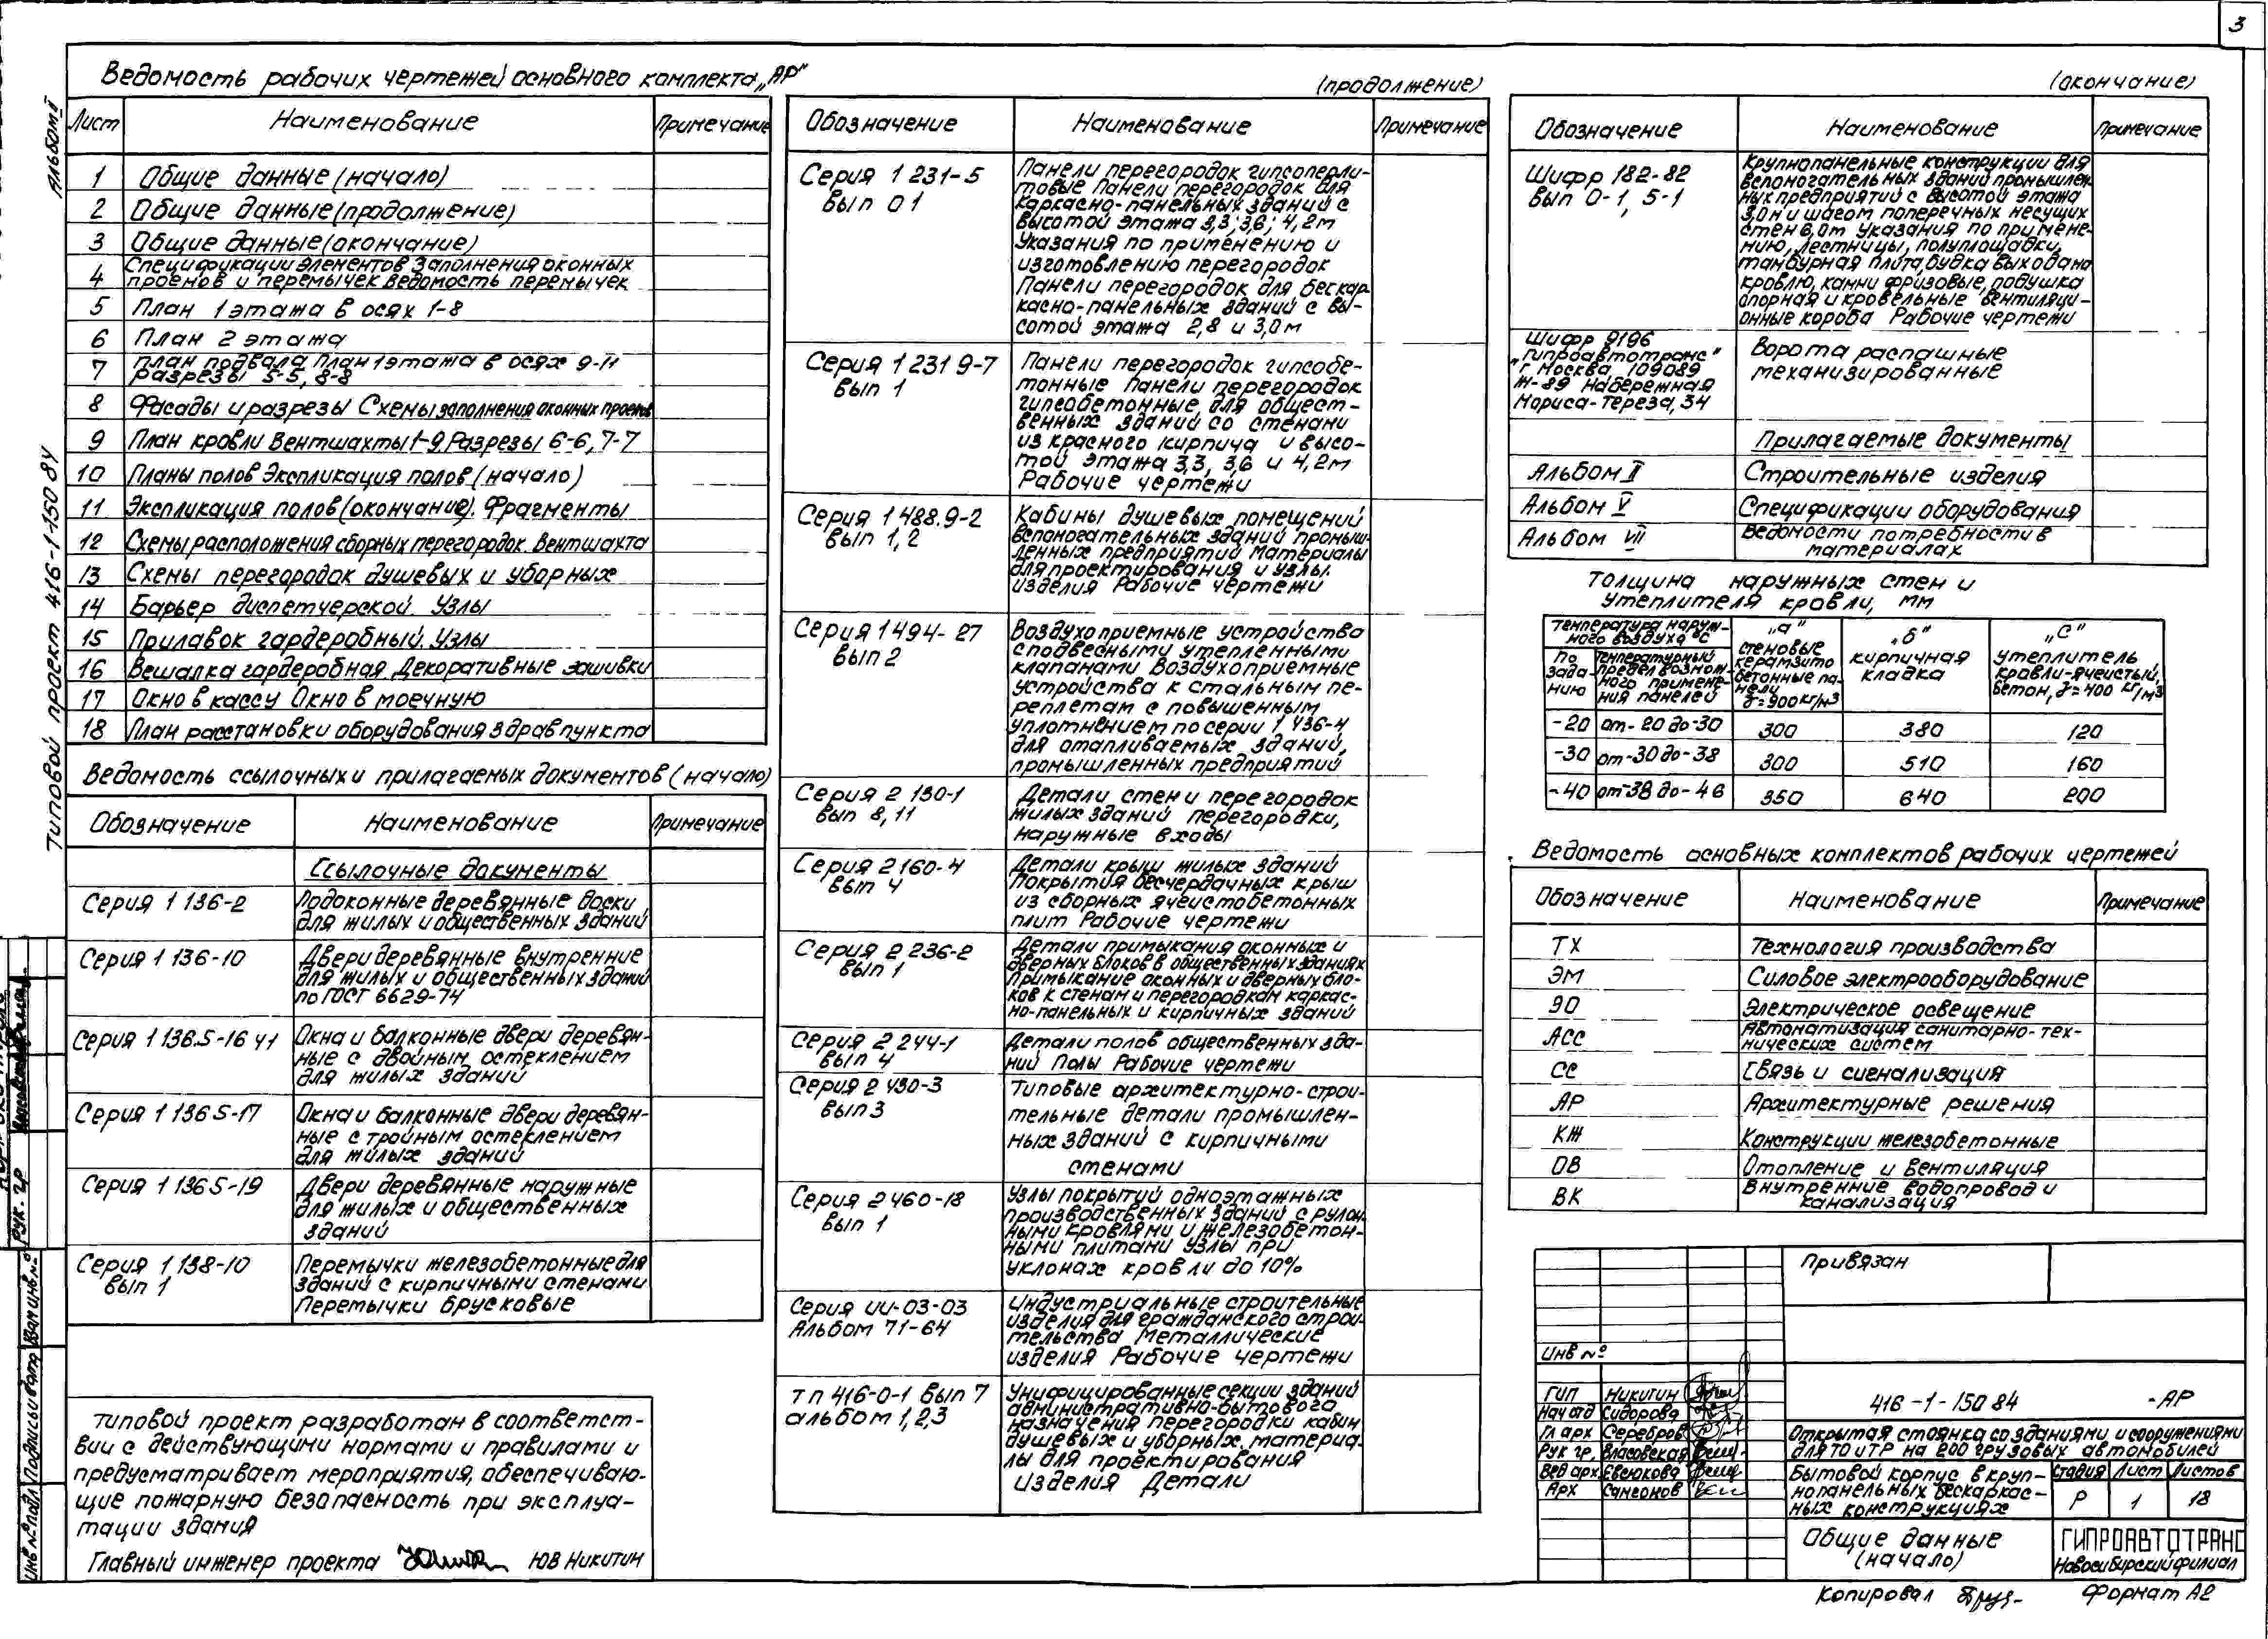 3
Альбом I
Типовой проект 416-1-150 84
Ведомость рабочих чертежей основного комплекта „АР"
Лист Наименование Примечание
1 Общие данные (начало)
2 Общие данные (продолжение)
3 Общие данные (окончание)
4 Спецификации элементов заполнения оконных
проемов и перемычек ведомость перемычек
5 План 1 этажа в осях 1-8
6 План 2 этажа
7 План подвала План 1 этажа в осях 9-11
Разрезы 5-5, 8-8
8 Фасады и разрезы Схемы заполнения оконных проемов
9 План кровли Вентшахты 1-9 Разрезы 6-6, 7-7
10 Планы полов Экспликация полов (начало)
11 Экспликация полов (окончание). Фрагменты
12 Схемы расположения сборных перегородок. Вентшахта
13 Схемы перегородок душевых и уборных
14 Барьер диспетчерской. Узлы
15 Прилавок гардеробный. Узлы
16 Вешалка гардеробная Декоративные зашивки
17 Окно в кассу Окно в моечную
18 План расстановки оборудования здравпункта
Ведомость ссылочных и прилагаемых документов (начало)
Обозначение Наименование Примечание
Ссылочные документы
Серия 1 136-2 Подоконные деревянные доски
для жилых и общественных зданий
Серия 1 136-10 Двери деревянные внутренние
для жилых и общественных зданий
по ГОСТ 6629-74
Серия 1 136.5-16 ч1 Окна и балконные двери деревян-
ные с двойным остеклением
для жилых зданий
Серия 1 136 5-17 Окна и балконные двери деревян-
ные с тройным остеклением
для жилых зданий
Серия 1 136 5-19 Двери деревянные наружные
для жилых и общественных
зданий
Серия 1 138-10 Перемычки железобетонные для
вып 1 зданий с кирпичными стенами
Перемычки брусковые
Типовой проект разработан в соответст-
вии с действующими нормами и правилами и
предусматривает мероприятия, обеспечиваю-
щие пожарную безопасность при эксплуа-
тации здания
Главный инженер проекта ЮВ Никитин
(продолжение)
Обозначение Наименование Примечание
Серия 1 231-5 Панели перегородок гипсоперли-
вып 0 1 товые Панели перегородок для
каркасно-панельных зданий с
высотой этажа 3,3; 3,6; 4,2м
Указания по применению и
изготовлению перегородок
Панели перегородок для бескар
касно-панельных зданий с вы-
сотой этажа 2,8 и 3,0м
Серия 1 231 9-7 Панели перегородок гипсобе-
вып 1 тонные Панели перегородок
гипсобетонные для общест-
венных зданий со стенами
из красного кирпича и высо-
той этажа 3,3, 3,6 и 4,2м
Рабочие чертежи
Серия 1 488.9-2 Кабины душевых помещений
вып 1, 2 вспомогательных зданий промыш-
ленных предприятий Материалы
для проектирования и узлы.
изделия Рабочие чертежи
Серия 1 494-27 Воздухоприемные устройства
вып 2 с подвесными утепленными
клапанами Воздухоприемные
устройства к стальным пе-
реплетам с повышенным
уплотнением по серии 1 436-4
для отапливаемых зданий,
промышленных предприятий
Серия 2 130-1 Детали стен и перегородок
вып 8, 11 жилых зданий перегородки,
наружные входы
Серия 2 160-4 Детали крыш жилых зданий
вып 4 Покрытия бесчердачных крыш
из сборных ячеистобетонных
плит Рабочие чертежи
Серия 2 236-2 Детали примыкания оконных и
вып 1 дверных блоков в общественных зданиях
Примыкание оконных и дверных бло-
ков к стенам и перегородкам каркас-
но-панельных и кирпичных зданий
Серия 2 244-1 Детали полов общественных зда-
вып 4 ний Полы Рабочие чертежи
Серия 2 430-3 Типовые архитектурно-строи-
вып 3 тельные детали промышлен-
ных зданий с кирпичными
стенами
Серия 2 460-18 Узлы покрытий одноэтажных
вып 1 производственных зданий с рулон-
ными кровлями и железобетон-
ными плитами Узлы при
уклонах кровли до 10%
Серия ИИ-03-03 Индустриальные строительные
Альбом 71-64 изделия для гражданского строи-
тельства Металлические
изделия Рабочие чертежи
тп 416-0-1 Вып 7 Унифицированные секции зданий
альбом 1, 2, 3 административно-бытового
назначения перегородки кабин
душевых и уборных, материа-
лы для проектирования
Изделия Детали
(окончание)
Обозначение Наименование Примечание
Шифр 182-82 Крупнопанельные конструкции для
вып 0-1, 5-1 вспомогательных зданий промышлен
ных предприятий с высотой этажа
3,0м и шагом поперечных несущих
стен 6,0м Указания по примене-
нию, лестницы, полуплощадки,
тамбурная плита, будка выхода на
кровлю, камни фризовые, подушка
опорная и кровельные вентиляци-
онные короба Рабочие чертежи
Шифр 9196 Ворота распашные
„Гипроавтотранс" механизированные
г Москва 109089
Ж-89 Набережная
Мориса-Тереза, 34
Прилагаемые документы
Альбом II Строительные изделия
Альбом V Спецификации оборудования
Альбом VII Ведомости потребности в
материалах
Толщина наружных стен и
утеплителя кровли, мм
Температура наруж-
ного воздуха °С
По зада- нию
Температурный предел возмож- ного примене- ния панелей
„а" стеновые керамзито бетонные па- нели γ=900 кг/м3
„б" кирпичная кладка
„С" утеплитель кровли-ячеистый, бетон, γ=400 кг/м3
-20 от-20 до-30 300 380 120
-30 от-30 до-38 300 510 160
-40 от-38 до-46 350 640 200
Ведомость основных комплектов рабочих чертежей
Обозначение Наименование Примечание
ТХ Технология производства
ЭМ Силовое электрооборудование
ЭО Электрическое освещение
АСС Автоматизация санитарно-тех-
нических систем
СС Связь и сигнализация
АР Архитектурные решения
КЖ Конструкции железобетонные
ОВ Отопление и вентиляция
ВК Внутренние водопровод и
канализация
Привязан
Инв №
ГИП Никитин
Нач отд Сидорова
Гл арх Серебров
Рук гр. Власовская
Вед арх Евсюкова
Арх Самсонов
416-1-150 84 -АР
Открытая стоянка со зданиями и сооружениями
для ТО и ТР на 200 грузовых автомобилей
Бытовой корпус в круп-
нопанельных бескаркас-
ных конструкциях
Стадия Лист Листов
Р 1 18
Общие данные
(начало)
ГИПРОАВТОТРАНС
Новосибирский филиал
Копировал
Формат А2
Рук. гр
Инв № подл Подпись и дата Взам инв №